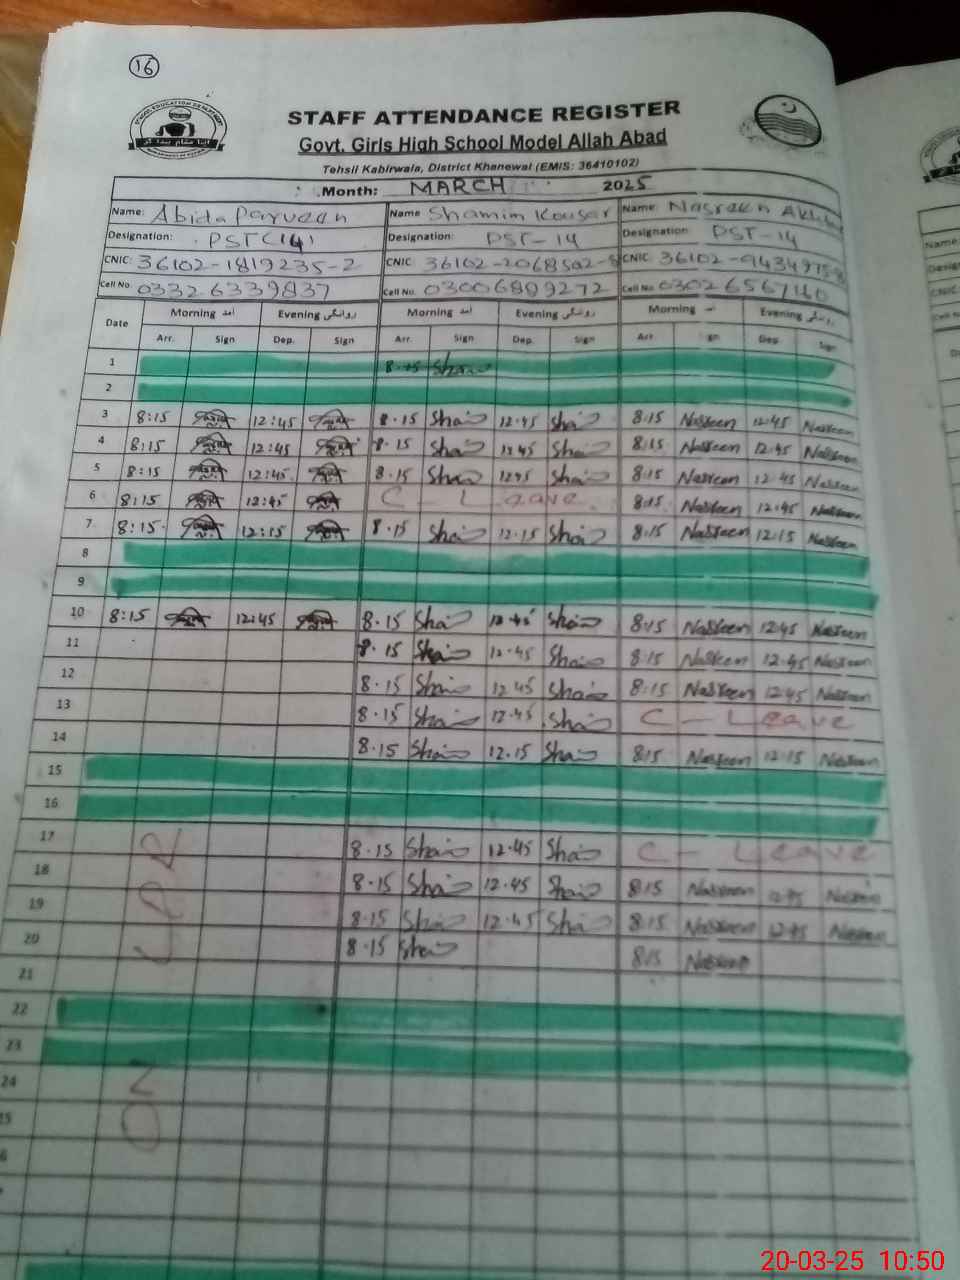 16
STAFF ATTENDANCE REGISTER
Govt. Girls High School Model Allah Abad
Tehsil Kabirwala, District Khanewal (EMIS: 36410102)
Month: MARCH 2025
Name: Abida Parveen Name Shamim Kousar Name: Nasreen
Designation: PST(14) Designation: PST-14 Designation: PST-14
CNIC: 36102-1819235-2 CNIC: 36102-2068502- CNIC: 36102-
Cell No. 03326339837 Cell No. 03006889272 Cell No. 03026567160
Date Morning آمد Evening روانگی Morning آمد Evening روانگی Morning Evening روانگی
Arr. Sign Dep. Sign Arr. Sign Dep. Sign Arr Dep Sign
1 8.15 Sha
2
3 8:15 12:45 8.15 Sha 12.45 Sha 8.15 Nasreen 12.45 Nasreen
4 8:15 12:45 8.15 Sha 12.45 Sha 8.15 Nasreen 12.45 Nasreen
5 8:15 12:45 8.15 Sha 12.45 Sha 8.15 Nasreen 12.45 Nasreen
6 8:15 12:45 C - Leave 8.15 Nasreen 12.45 Nasreen
7 8:15 12:15 8.15 Sha 12.15 Sha 8.15 Nasreen 12.15 Nasreen
8
9
10 8:15 12:45 8.15 Sha 12.45 Sha 8.15 Nasreen 12.45 Nasreen
11 8.15 Sha 12.45 Sha 8.15 Nasreen 12.45 Nasreen
12 8.15 Sha 12.45 Sha 8.15 Nasreen 12.45 Nasreen
13 8.15 Sha 12.45 Sha C - Leave
14 8.15 Sha 12.15 Sha 8.15 Nasreen 12.15 Nasreen
15
16
17 8.15 Sha 12.45 Sha C - Leave
18 8.15 Sha 12.45 Sha 8.15 Nasreen 12.45 Nasreen
19 8.15 Sha 12.45 Sha 8.15 Nasreen 12.45 Nasreen
20 8.15 Sha 8.15 Nasreen
21
22
23
24
ON LPR
20-03-25 10:50